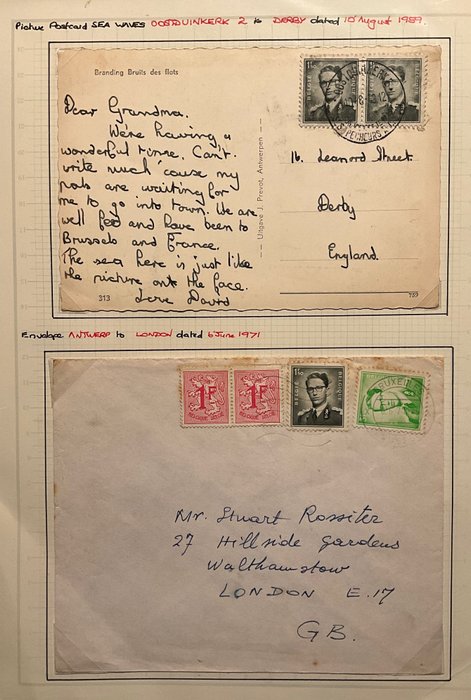 Picture Postcard SEA WAVES OOSTDUINKERK 2 to DERBY dated 10 August 1959.
Branding Bruits des flots
Dear Grandma.
We're having a
wonderful time. Can't
write much 'cause my
pals are waiting for
me to go into town. We are
well fed and have been to
Brussels and France.
The sea here is just like
the picture on the face.
Love David
313
Uitgave J. Prevot, Antwerpen
BELGIE BELGIQUE
16. Leonard Street
Derby
England.
759
Envelope ANTWERP to LONDON dated 6 June 1971
1F
1F
BELGIE BELGIQUE
Mr. Stuart Rossiter
27 Hillside Gardens
Walthamstow
LONDON E.17
GB.